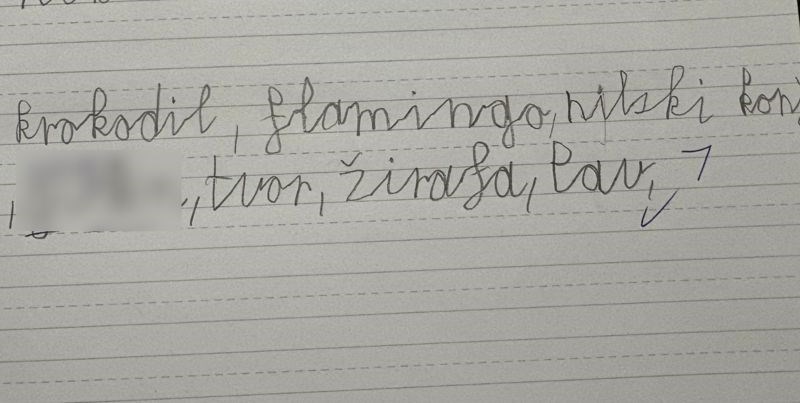 krokodil, flamingo, nilski konj
, tvor, žirafa, lav, 7